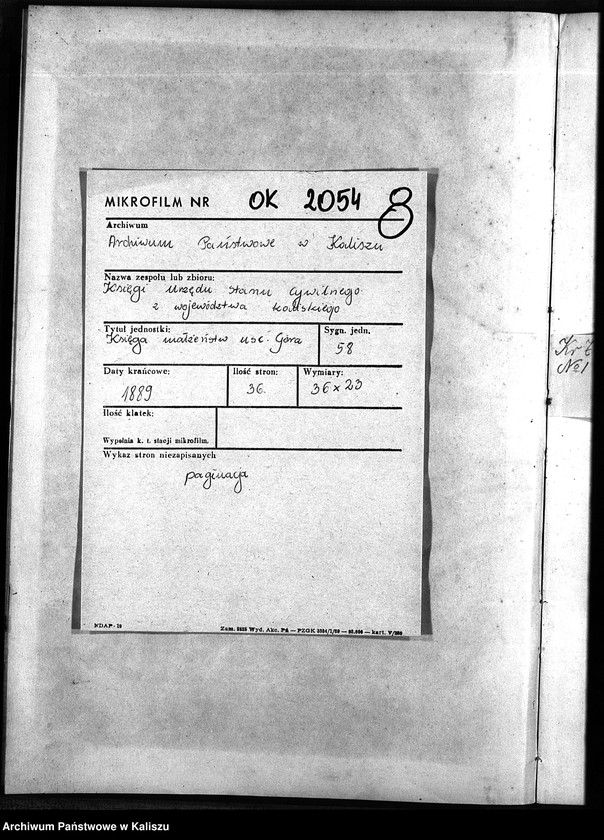 MIKROFILM NR OK 2054 8
Archiwum
Archiwum Państwowe w Kaliszu
Nazwa zespołu lub zbioru:
Księgi urzędu stanu cywilnego
z województwa kaliskiego
Tytuł jednostki:
Księga małżeństw usc-Góra
Sygn. jedn.
58
Daty krańcowe:
1889
Ilość stron:
36.
Wymiary:
36 x 23
Ilość klatek:
Wypełnia k. t. stacji mikrofilm.
Wykaz stron niezapisanych
paginacja
NDAP-18
Zam. Wyd. Akc. PA — PZGK — kart. V/280
Kr
No 1
Archiwum Państwowe w Kaliszu